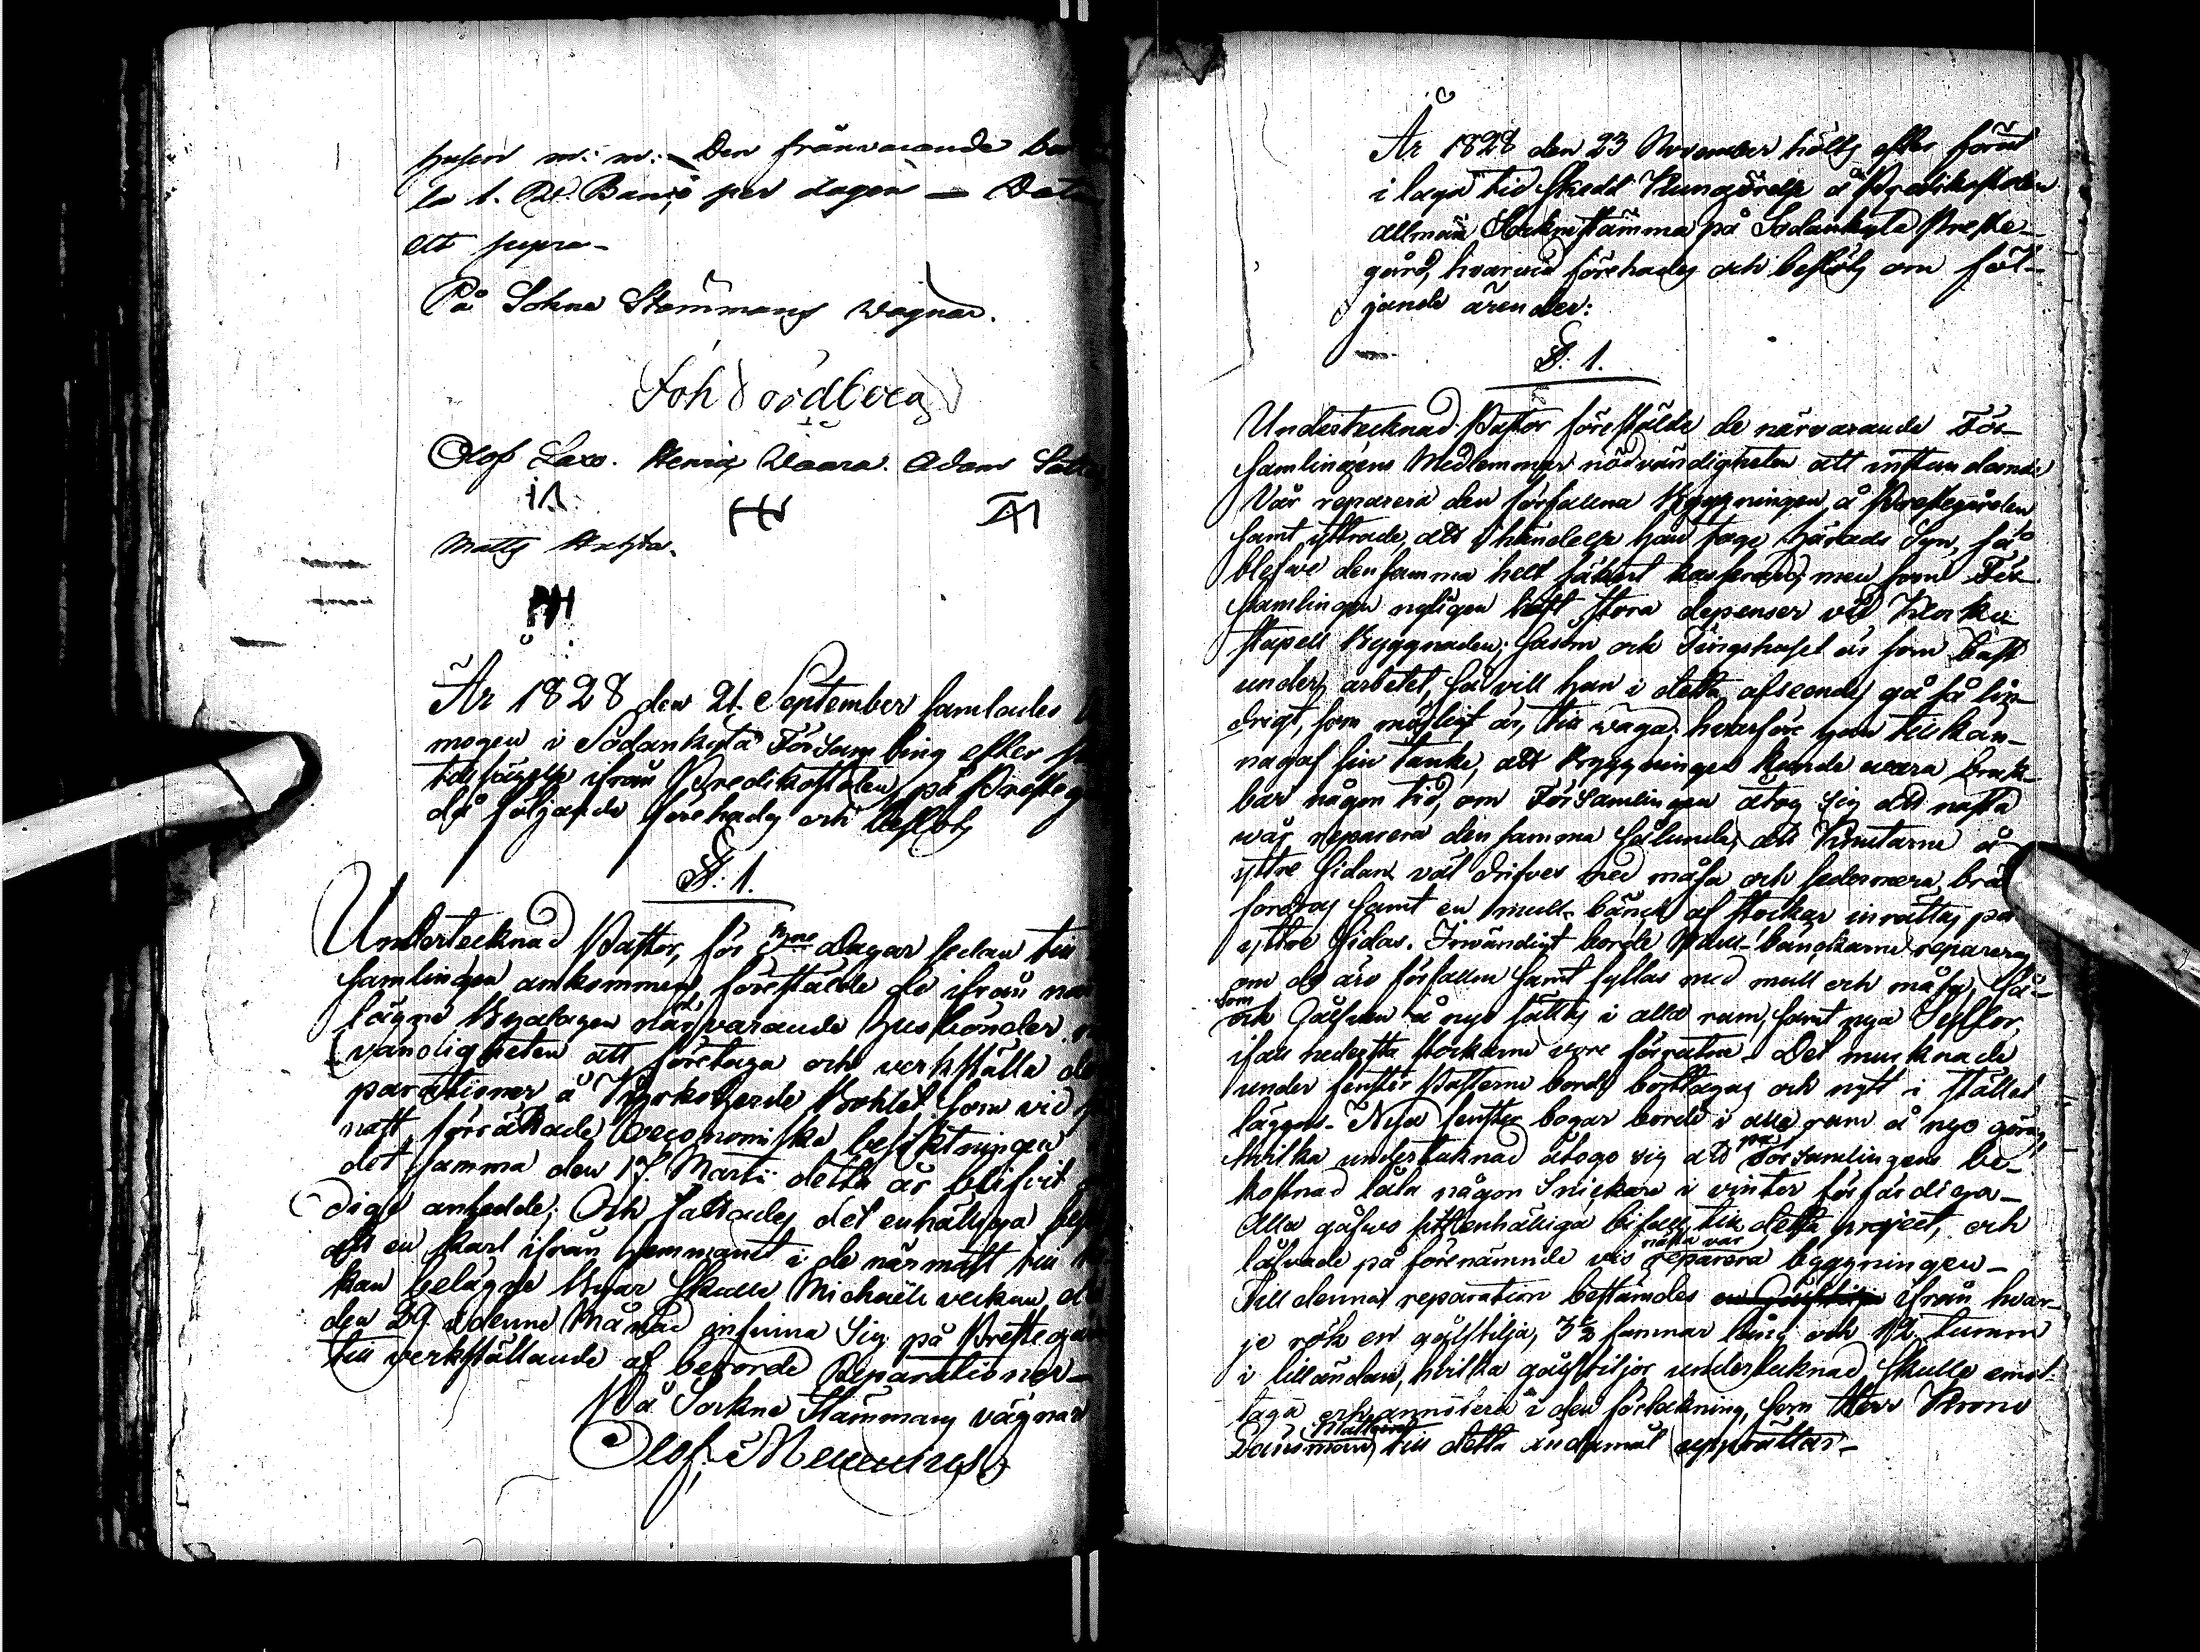 m: m: Den frånvarande
1. Rd. Banco per dagen — Dat
ut supra—
På Sokne Stemmans Vägnar.
Joh Nordberg
Olof Laxo. Henrik Waara. Adam
Matts
År 1828 den 21 September samlades
mogen i Sodankylä Församling efter
ifrån Predikostolen på Presteg
då följande förehades och beslöts
§. 1.
Undertecknad Pastor, för dagar sedan till
samlingen ankommen, föreställde de ifrån
lägne Byalagen närvarande husbönder
vändigheten att företaga och verkställa
parationer å Kyrkoherde Bohlet som vid
nast förrättade Oeconomiske besiktningen
det samma den 17 Martii detta år blifvit
dige ansedde; Och fattades det enhälliga
att en karl ifrån hemmanet i de närmast till
kan belägne Byar skulle Michaëli veckan
den 29 i denne Månad infinna Sig på Prestega
till verkställande af berörde Reparationer—
På Sockne Stämmans vägnar
Olof Mennius
År 1828 den 23 November hölls efter förut
i laga tid skedd Kungörelse å Predikostolen
allmän Sockenstämma på Sodankylä Preste-
gård, hvarvid förehades och beslöts om föl-
jande ärender:
§. 1.
Undertecknad Pastor föreställde de närvarande För-
samlingens Medlemmar nödvändigheten att instundande
Vår reparera den förfallna Byggningen å Prestegården
samt yttrade, att i händelse han tage Härads Syn, så
blefve densamma helt säkert kasserad; men som För-
samlingen nyligen haft stora depenser vid Klocku
stapels Byggnaden, såsom och Tingshuset är som bäst
under arbetet, så vill han i detta afseende gå så lin-
drigt, som möjligt är, till väga; hvarföre han tillkän-
nagaf sin tanke, att Byggningen kunde vara bruk-
bar någon tid, om Församlingen åtog sig att nästa
vår reparera den samma sålunda, att Knutarne å
yttre sidan väl drifves med måsa och sedermera bräd
fordras samt en mull-bänk af stockar inrättas på
yttre sidan. Invändigt borde mull-bänckarne repareras
om de äro förfallne samt fyllas med mull och måsa, så-
som
och Gålfven å nyo sättas i alla rum, samt nya Syllor,
ifall nedersta stockarne vore förrutne. Det murknade
under fenster Pasterne borde borttagas och nytt i stället
läggas. Nya fenster bogar borde i alla rum å nyo göras,
hvilka undertecknad åtogo sig att på Församlingens be-
kostnad låta någon Snickare i vinter förfärdiga—
Alla gåfvo sitt enhälliga bifall till detta project, och
nästa vår
låfvade på förenämnde vis reparera byggningen—
Till denna reparation bestämdes ifrån hvar-
je rök en gålftilja, 3½ famnar lång och 12 tumm
i lilländan, hvilka gålftiljor undertecknad skulle emot-
taga och annotera i den förtekning, som Herr Krono
Länsman till detta ändamål upprättar—